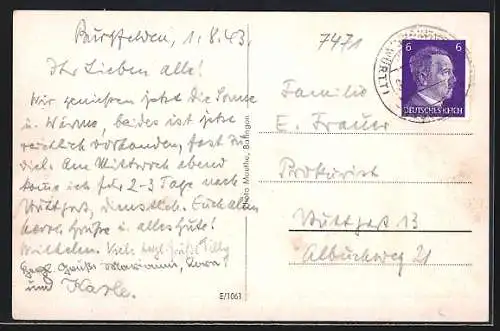 Burgfelden, 1.8.43.
Ihr Lieben alle!
Wir geniessen jetzt die Sonne
u. Wärme, beides ist jetzt
reichlich vorhanden, fast zu
viel. Am Mittwoch abend
komme ich für 2-3 Tage nach
Stuttgart, dienstlich. Euch allen
herzl. Grüße u. alles Gute!
Wilhelm. Viele herzl. Grüße Tilly
herzl. Grüße Mariann,
und Karle.
Photo Mauthe, Balingen
E/1061
7471
6 6
DEUTSCHES REICH
(WÜRTT)
Familie
E. Frauer
Prokurist
Stuttgart 13
Albuchweg 21